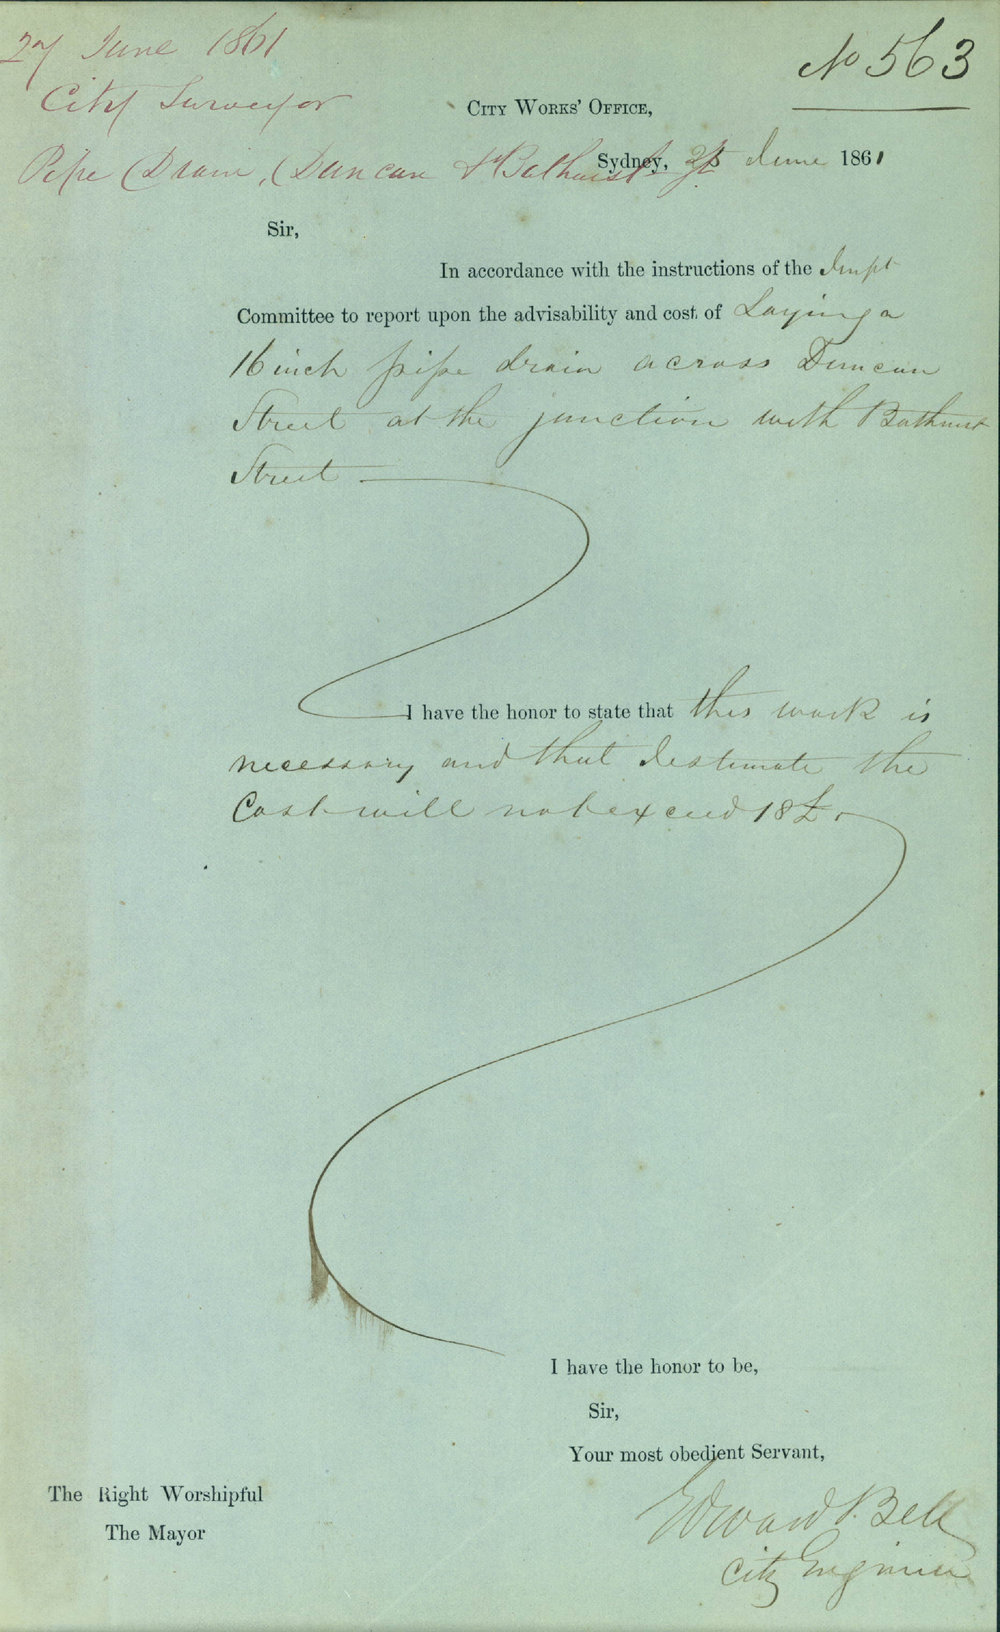 27 June 1861
No 563
City Surveyor
CITY WORKS' OFFICE,
Pipe Drain, Duncan & Bathurst Sts
Sydney, June 1861
Sir,
In accordance with the instructions of the Impt
Committee to report upon the advisability and cost of Laying a
16 inch pipe drain across Duncan
Street at the junction with Bathurst
Street
I have the honor to state that this work is
necessary and that I estimate the
Cost will not exceed 18£
I have the honor to be,
Sir,
Your most obedient Servant,
The Right Worshipful
The Mayor
Edward Bell
City Engineer